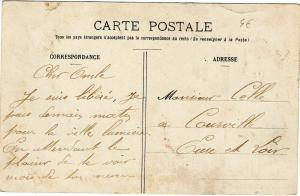 CARTE POSTALE
Tous les pays étrangers n'acceptent pas la correspondance au recto (Se renseigner à la Poste)
CORRESPONDANCE
ADRESSE
Cher Oncle
Je suis libéré, je
pars demain matin
pour la ville lumière
En attendant le
plaisir de te voir
Monsieur Colle
a Courville
Eure et Loir